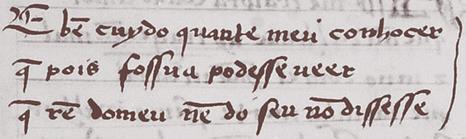 E bẽ cuydo quante meu conhocer
q̃ pois fossua podesse ueer
q̃ rẽ domeu nẽ do seu nõ dissesse